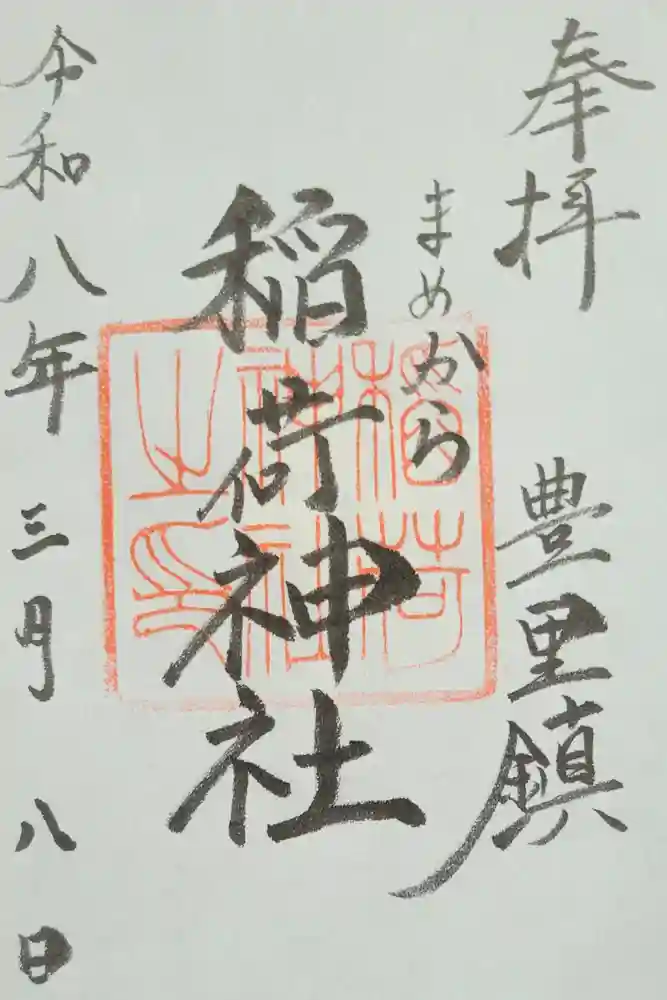 奉拝
豊里鎮
まめがら
稲荷神社
稲荷
神社
之印
令和八年三月八日